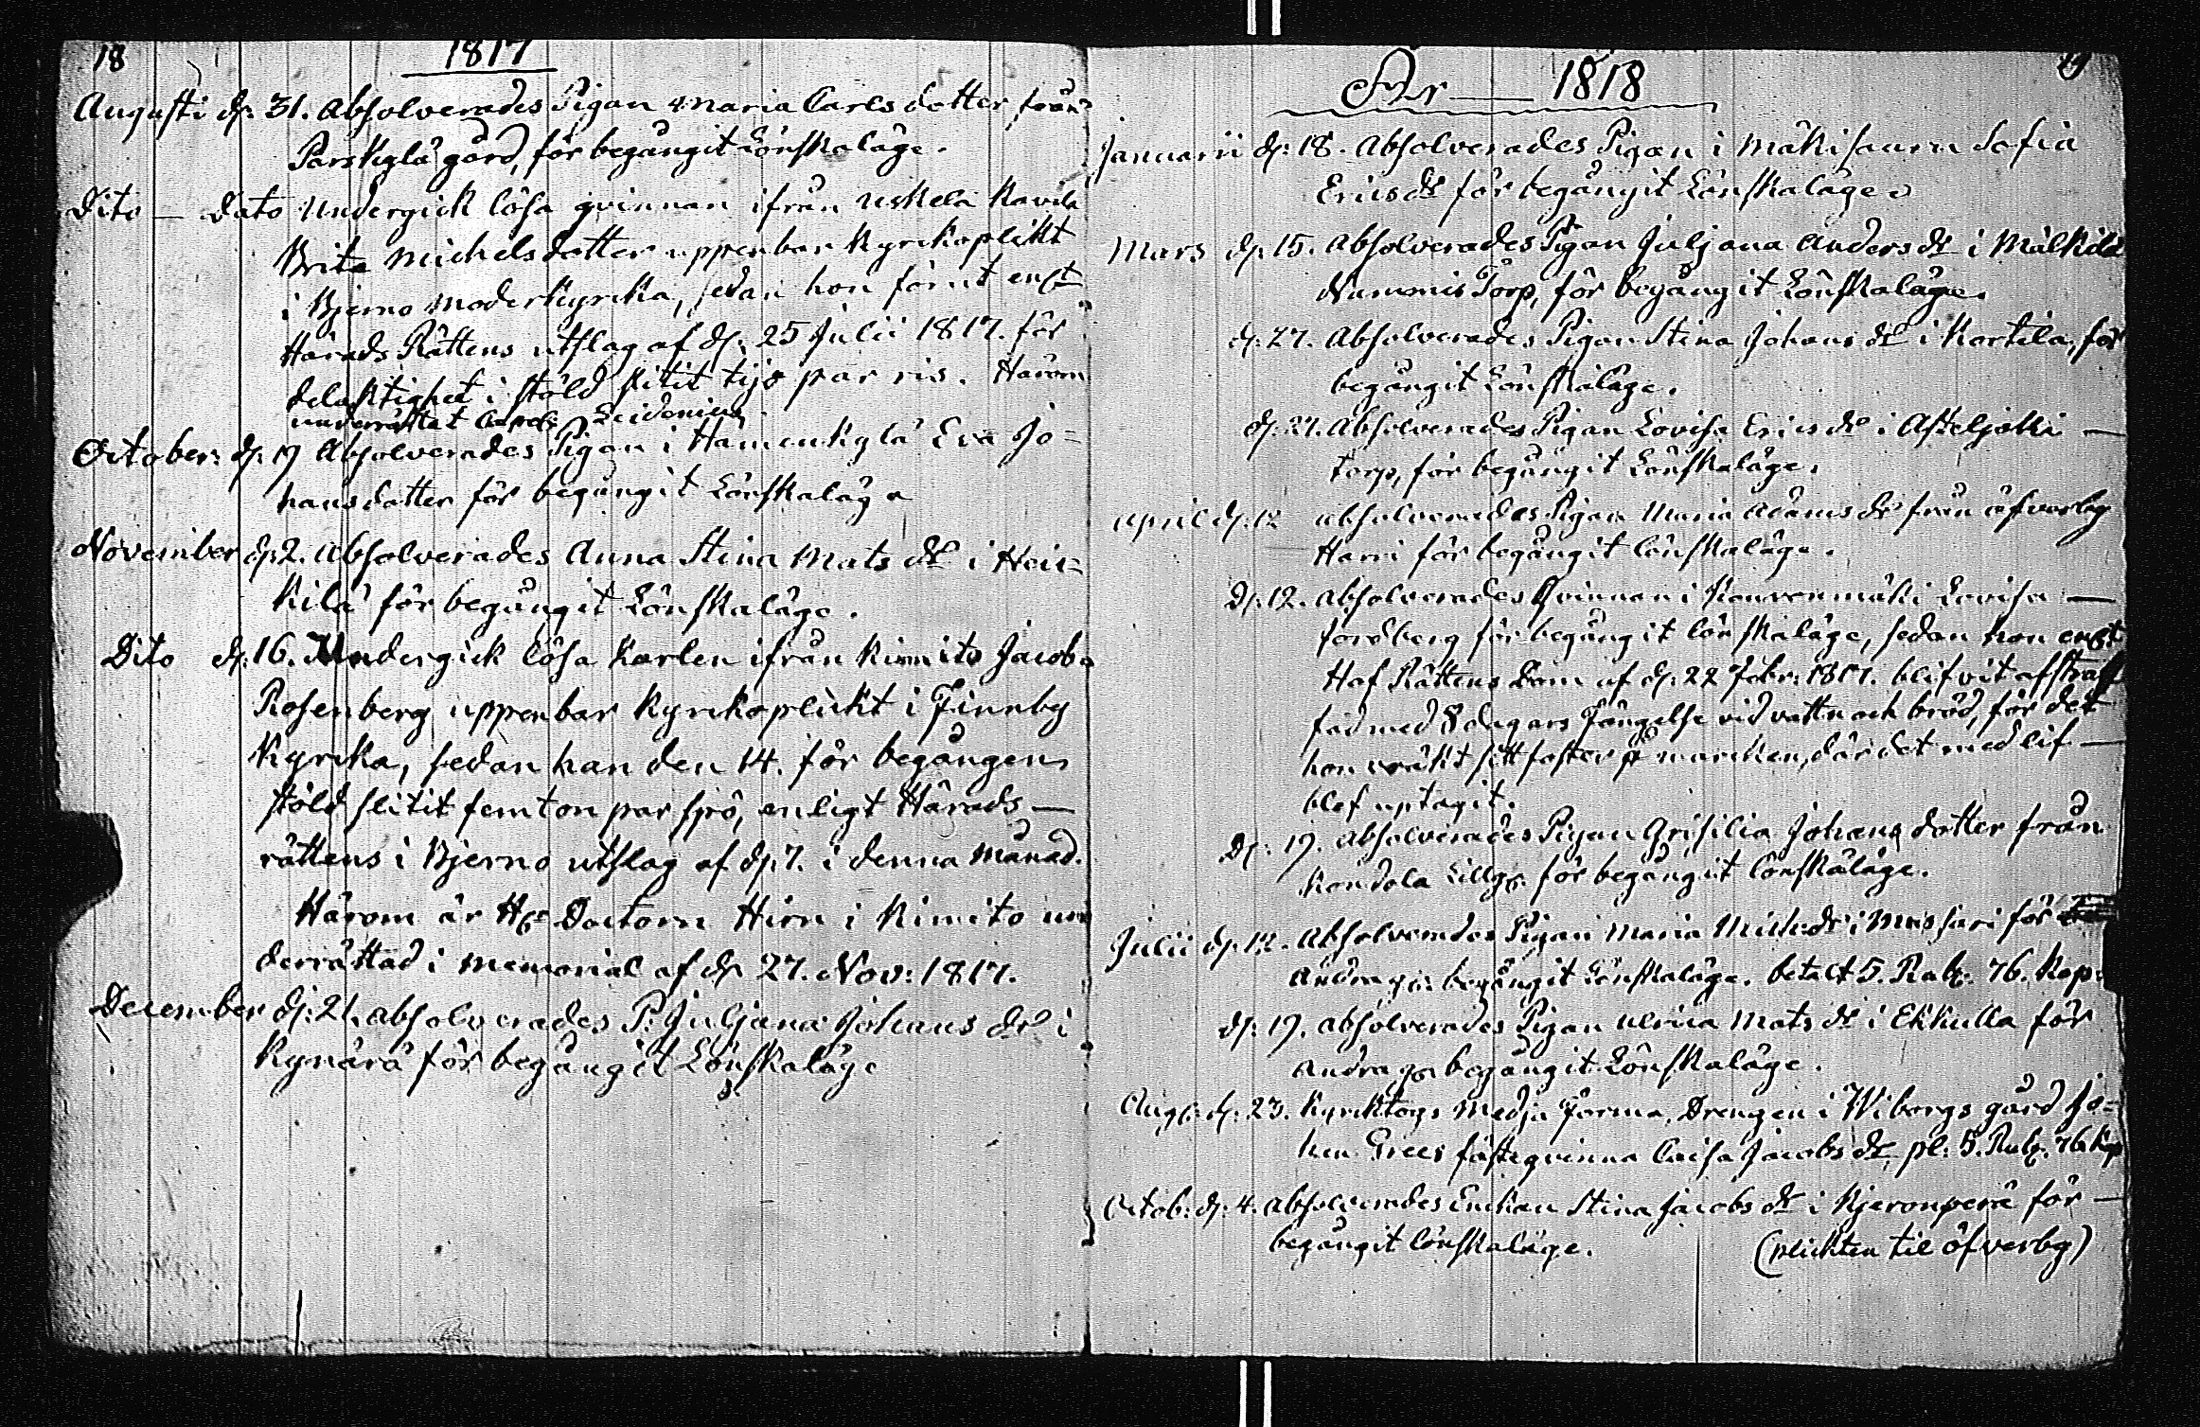 18
1817
Augusti d: 31. Absolverades Pigan Maria Carlsdotter från
Parskylä gård, för begångit Lönskaläge.
Dito — Dato Undergick lösa qvinnan ifrån Uskela Kavila
Brita Michelsdotter uppenbar Kyrkoplikt
i Bjerno Moderkyrka, sedan hon förut enl:t
Härads Rättens utslag af d: 25 Julii 1817. för
delaktighet i stöld slitit tijo par ris. Härom
underrättat
October: d: 19 Absolverades Pigan i Hämenkylä Eva Jo=
hansdotter för begångit Lönskaläge
November d: 2. Absolverades Anna Stina Mats dr i Heis=
kilä för begångit Lönskaläge.
Dito d: 16. Undergick lösa Karlen ifrån Kimito Jacob
Rosenberg uppenbar Kyrkoplickt i Finnby
Kyrka, sedan han den 14. för begången
stöld slitit femton par spö, enligt Härads —
rättens i Bjerno utslag af d: 7. i denna Månad.
Härom är Hr Doctorn Hirn i Kimito un
derrättad i memorial af d: 27. Nov: 1817.
December d: 21. absolverades P: Juljana Johans dr i
Kynärä för begångit Lönskaläge
19
År — 1818
Januarii d: 18. Absolverades Pigan i Mäkisauru Sofia
Ericsdr för begångit Lönskaläge
Mars d: 15. Absolverades Pigan Juljana Anders dr i Mälkilä
Nummis Torp, för begångit Lönskaläge.
d: 27. Absolverades Pigan Stina Johans dr i Kartila, för
begångit Lönskaläge.
d: 27. Absolverades Pigan Lovisa Erics dr i Asteljoki —
torp, för begångit Lönskaläge.
April d: 12 absolverades Pigan Maria Adams dr från öfverby
Harri för begångit lönskaläge.
d: 12. absolverades Qvinnan i Lovisa —
för begångit lönskaläge, sedan hon enl:t
Hof Rättens Dom af d: 22 Febr: 1817. blifvit afstraf
fad med 8 dagars Fängelse vid vatten och bröd, för det
hon vräkt sitt foster på marken, där det med lif —
blef uptagit.
D: 19. absolverades Pigan Grisilia Johans dotter från
Kondola för begångit lönskaläge.
Julii d: 12. Absolverades Pigan Maria Michsdr i Missari för
andra g: begångit Lönskaläge. betalt 5. Rub: 76. Kop:
d: 19. absolverades Pigan Ulrica Mats dr i Ekkulla för
andra g: begångit Lönskaläge.
Aug: d: 23. Kyrktogs Medja Forma, Drengen i Wiborgs gård Jo=
han Grees fästeqvinna Caisa Jacobs dr pl: 5. Rub: 76 Kop
Octob: d: 4. absolverades Enckan Stina Jacobs dr i Kjeronperä för —
begångit lönskaläge. (plickten til öfverby)